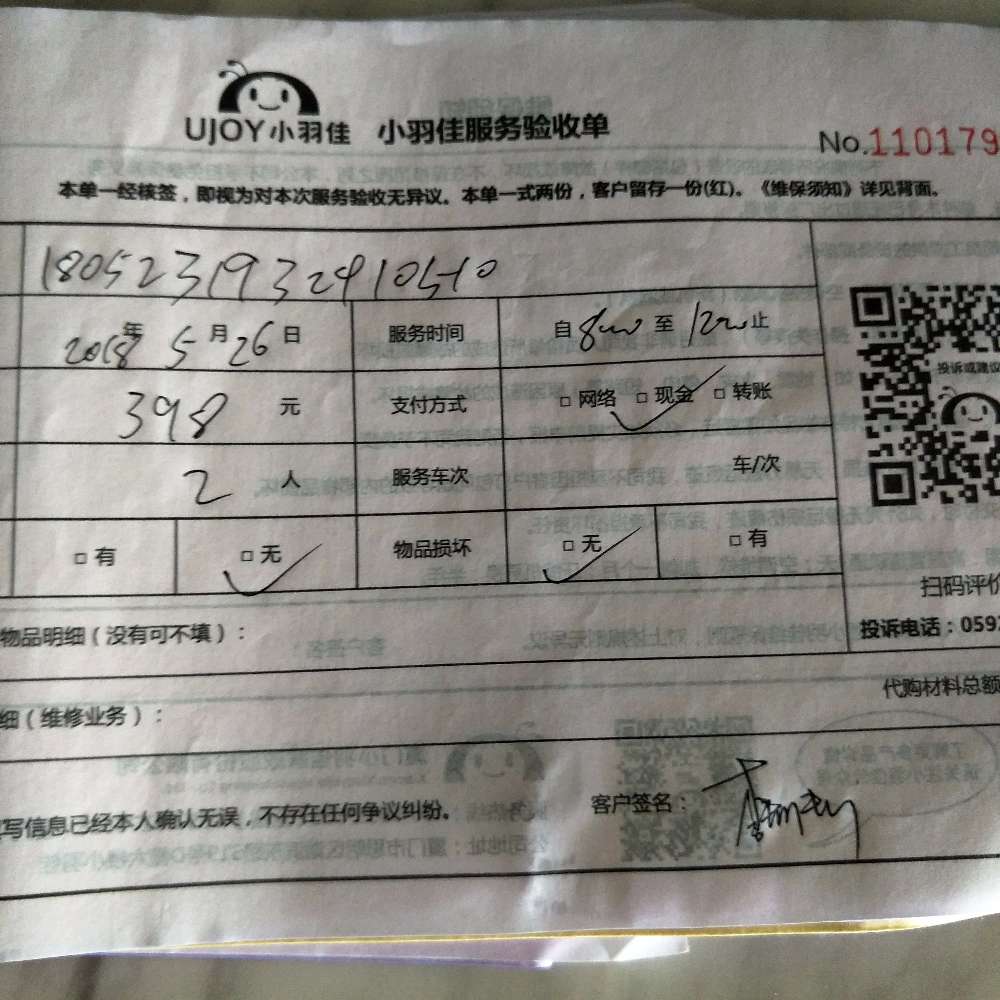 UJOY小羽佳 小羽佳服务验收单
No.110179
本单一经核签，即视为对本次服务验收无异议。本单一式两份，客户留存一份(红)。《维保须知》详见背面。
180523193291
2018年5月26日 服务时间 自800至1200止
398元 支付方式 □网络 □现金 □转账
投诉或建议
2人 服务车次 车/次
□有 □无 物品损坏 □无 □有
扫码评价
物品明细（没有可不填）：
投诉电话：059
代购材料总额
细（维修业务）：
写信息已经本人确认无误，不存在任何争议纠纷。 客户签名：